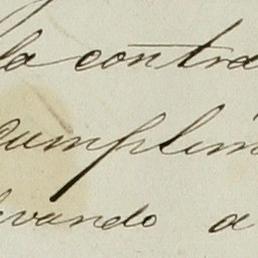 la contra
cumplim
levando a